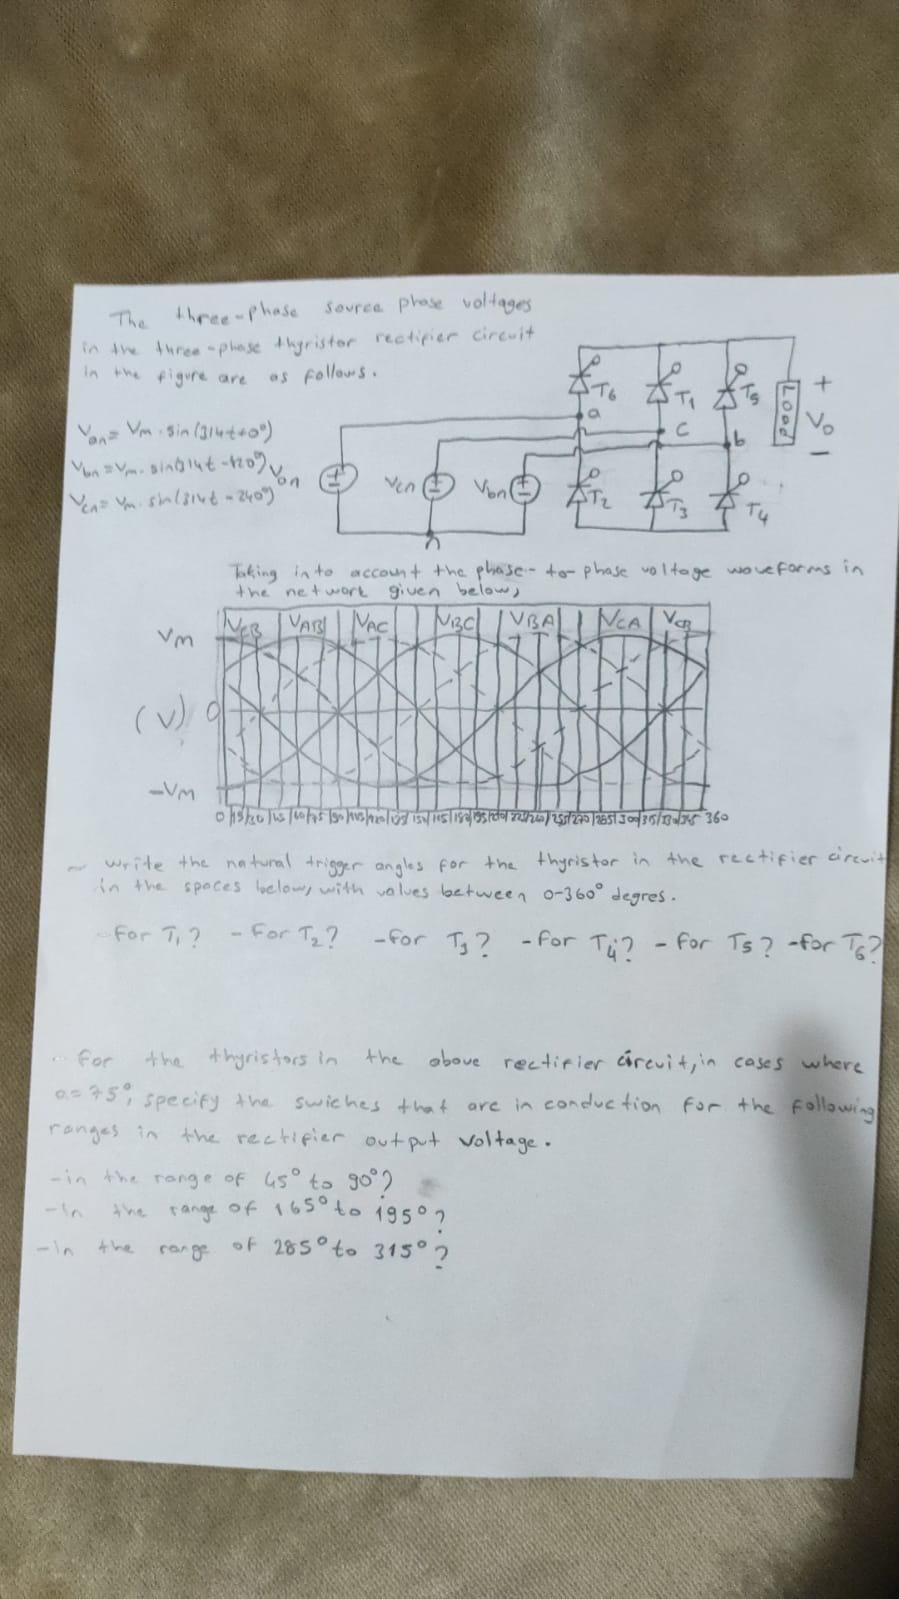 The three-phase source phase voltages
in the three-phase thyristor rectifier circuit
in the figure are as follows.
Van = Vm . sin(314t+0°)
Vbn = Vm. sin(314t -120°)
Vcn = Vm. sin(314t - 240°)
T6
T1
T5
a
c
b
LOAD
+
Vo
-
Van
Vcn
Vbn
T2
T3
T4
n
Taking into account the phase-to-phase voltage waveforms in
the network given below,
VCB VAB VAC VBC VBA VCA VCB
Vm
(V) 0
-Vm
0 15 30 45 60 75 90 105 120 135 150 165 180 195 210 225 240 255 270 285 300 315 330 345 360
~ write the natural trigger angles for the thyristor in the rectifier circuit
in the spaces below, with values between 0-360° degres.
-for T1? - for T2? -for T3? -for T4? - for T5? -for T6?
- for the thyristors in the above rectifier circuit, in cases where
a=75°, specify the swiches that are in conduction for the following
ranges in the rectifier output voltage.
-in the range of 45° to 90°?
-In the range of 165° to 195°?
-In the range of 285° to 315°?